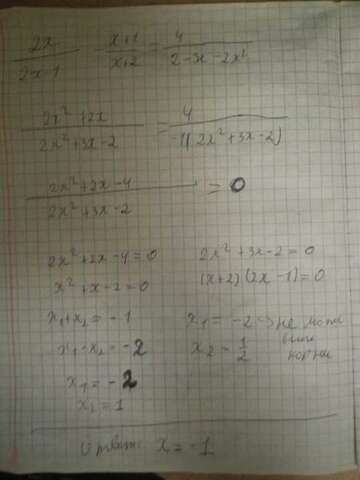 2x / 2x-1 - x+1 / x+2 = 4 / 2-3x-2x²
2x²+2x / 2x²+3x-2 = 4 / -1(2x²+3x-2)
2x²+2x-4 / 2x²+3x-2 = 0
2x²+2x-4=0
x²+x-2=0
x₁+x₂=-1
x₁·x₂=-2
x₁=-2
x₂=1
2x²+3x-2=0
(x+2)(2x-1)=0
x₁=-2 → не может
x₂ - 1/2
быть
корнем
Ответ: x=-1